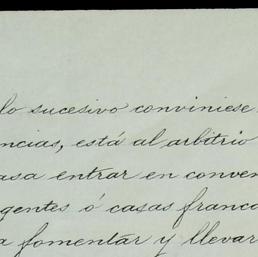 lo sucesivo conviniese
ncias, está al arbitrio
asa entrar en conven
gentes ó casas franca
a fomentar y llevar